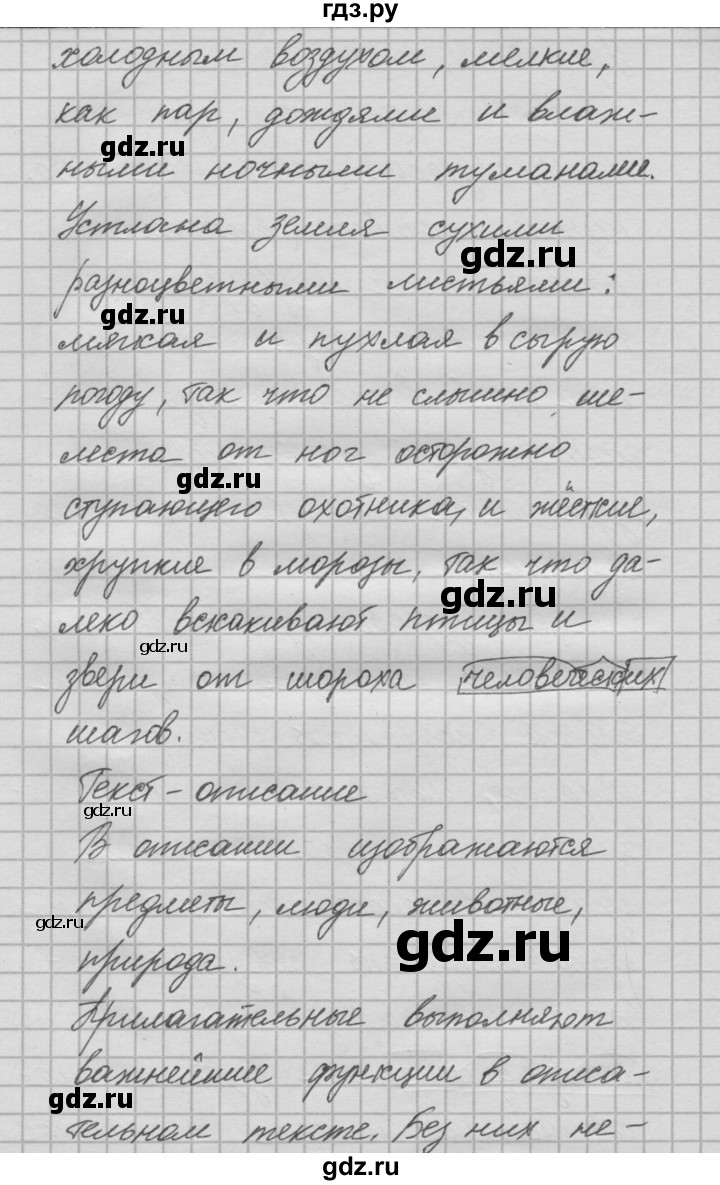 гдз.ру
холодным воздухом, мелкие,
как пар, дождями и влаж-
gdz.ru
ными ночными туманами.
Устлана земля сухими
gdz.ru
разноцветными листьями:
gdz.ru
мягкая и пухлая в сырую
погоду, так что не слышно ше-
леста от ног осторожно
gdz.ru
ступающего охотника, и жёсткие,
хрупкие в морозы, так что да-
gdz.ru
леко вскакивают птицы и
gdz.ru
звери от шороха человеческих
шагов.
Текст-описание
gdz.ru
В описании изображаются
предметы, люди, животные,
gdz.ru
gdz.ru
природа.
Прилагательные выполняют
важнейшие функции в описа-
gdz.ru
тельном тексте. Без них не-
gdz.ru